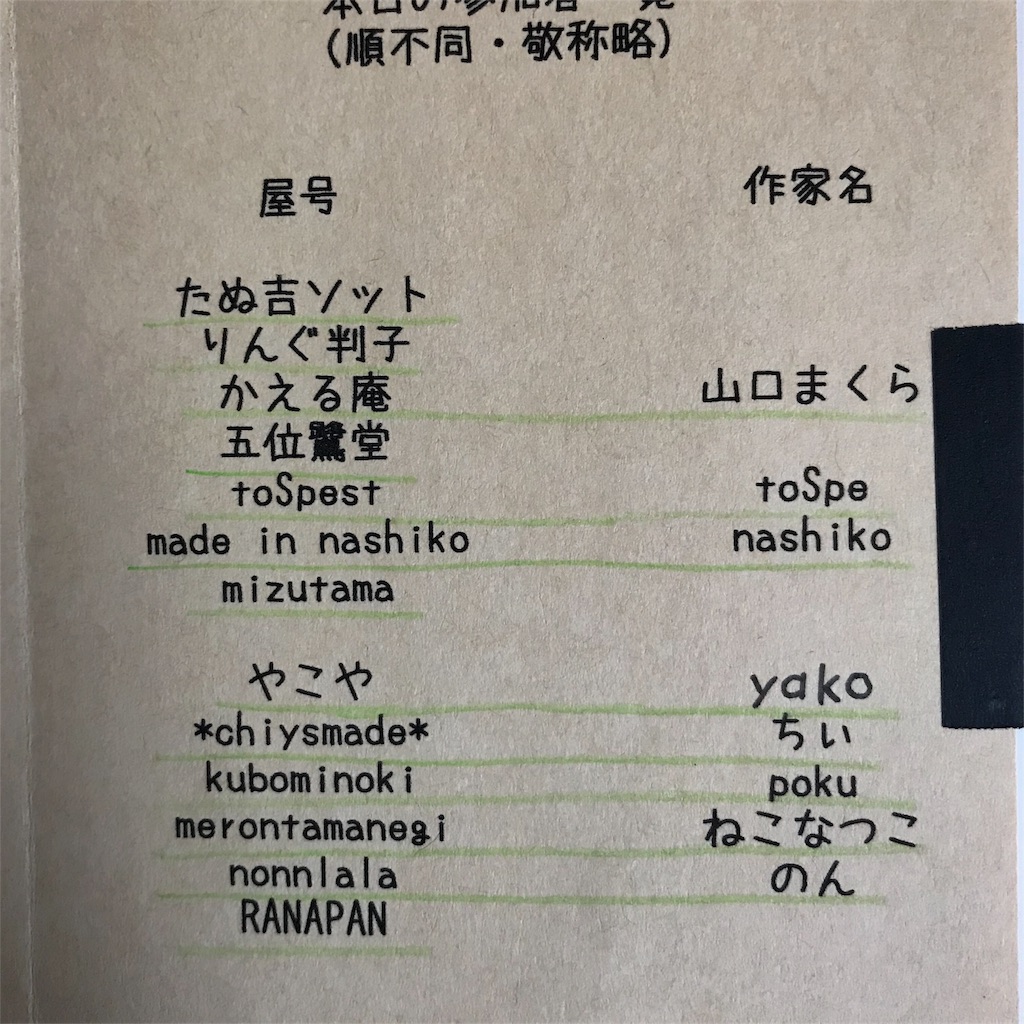 本日の参加者一覧
(順不同・敬称略)
屋号 作家名
たぬ吉ソット
りんぐ判子
かえる庵 山口まくら
五位鷺堂
toSpest toSpe
made in nashiko nashiko
mizutama
やこや yako
*chiysmade* ちぃ
kubominoki poku
merontamanegi ねこなつこ
nonnlala のん
RANAPAN